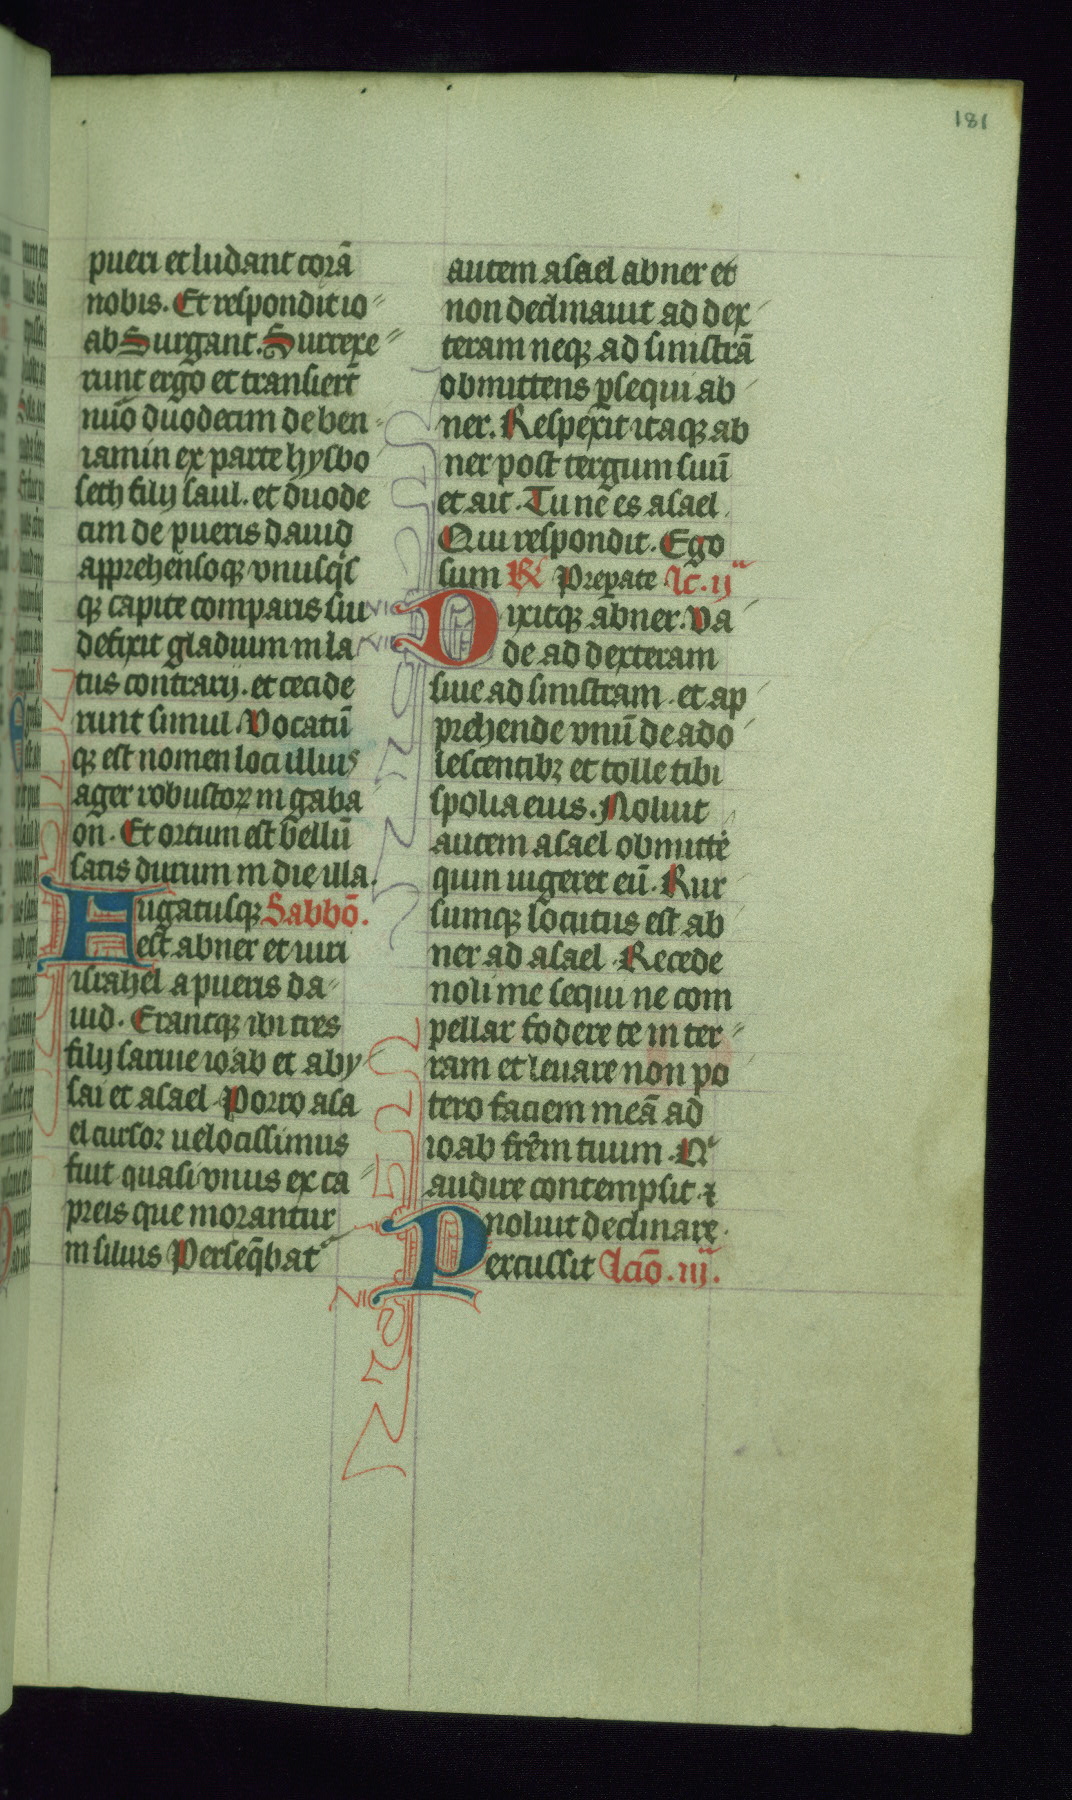 181
pueri et ludant corā
nobis. Et respondit io
ab Surgant. Surrexe
runt ergo et transierūt
nūo duodecim de ben
iamin ex parte hysbo
seth filij saul. et duode
cim de pueris dauid
apprehensoqꝫ vnusqͥs
qꝫ capite comparis sui
defixit gladium in la
tus contrarij. et cecide
runt simul. Vocatū
qꝫ est nomen loci illius
ager robustoꝝ in gaba
on. Et ortum est bellū
satis durum in die illa.
Fugatusqꝫ Sabbō.
est abner et uiri
israhel a pueris da
uid. Erantqꝫ ibi tres
filij saruie ioab et aby
sai et asael. Porro asa
el cursor uelocissimus
fuit quasi vnus ex ca
preis que morantur
in siluis Perseq̄bat᷑
autem asael abner et
non declinauit ad dex
teram neqꝫ ad sinistrā
obmittens ꝑsequi ab
ner. Respexit itaqꝫ ab
ner post tergum suū
et ait. Tu ne es asael.
Qui respondit. Ego
sum R᷑ Preparate lc. ijͣ
Dixitqꝫ abner. Va
de ad dexteram
siue ad sinistram. et ap
prehende vnū de ado
lescentibꝫ et tolle tibi
spolia eius. Noluit
autem asael obmitte᷑
quin uigeret eū. Rur
sumqꝫ locutus est ab
ner ad asael. Recede
noli me sequi ne com
pellar fodere te in ter
ram et leuare non po
tero faciem meā ad
ioab frēm tuum. Qͥ
audire contempsit ⁊
noluit declinare.
Percussit lcīo. iijͣ.